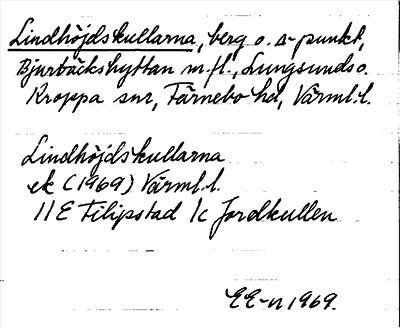 Lindhöjdskullarna, berg o. Δ-punkt,
Bjurbäckshyttan m.fl., Lungsunds o.
Kroppa snr, Färnebo hd, Värml. l.
Lindhöjdskullarna
ek (1969) Värml. l.
11E Filipstad 1c Jordkullen
EE-n 1969.